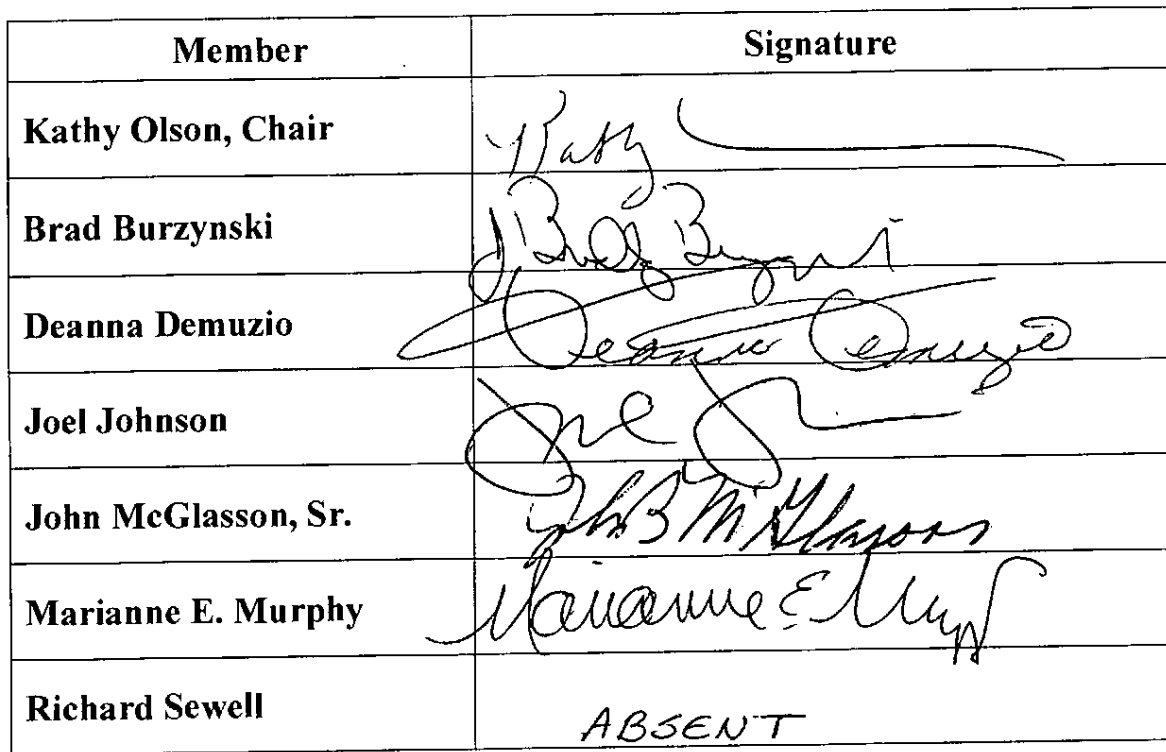 Member Signature
Kathy Olson, Chair Kathy
Brad Burzynski J Bradley Burzynski
Deanna Demuzio Deanna Demuzio
Joel Johnson Joel
John McGlasson, Sr. John B McGlasson
Marianne E. Murphy Marianne E. Murphy
Richard Sewell ABSENT